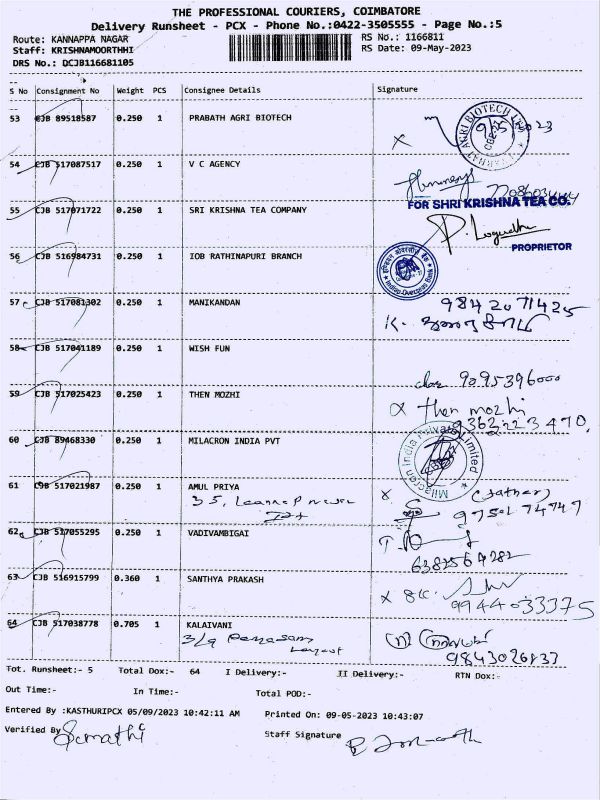 THE PROFESSIONAL COURIERS, COIMBATORE
Delivery Runsheet - PCX - Phone No.:0422-3505555 - Page No.:5
Route: KANNAPPA NAGAR
RS No.: 1166811
Staff: KRISHNAMOORTHHI
RS Date: 09-May-2023
DRS No.: DCJB116681105
S No Consignment No Weight PCS Consignee Details Signature
53 CJB 89518587 0.250 1 PRABATH AGRI BIOTECH
54 CJB 517087517 0.250 1 V C AGENCY
FOR SHRI KRISHNA TEA CO.
55 CJB 517071722 0.250 1 SRI KRISHNA TEA COMPANY
P. Logudha
PROPRIETOR
56 CJB 516984731 0.250 1 IOB RATHINAPURI BRANCH
Indian Overseas Bank
57 CJB 517081302 0.250 1 MANIKANDAN
9842071425
58 CJB 517041189 0.250 1 WISH FUN
9095396000
59 CJB 517025423 0.250 1 THEN MOZHI
then mozhi
9362223470,
60 CJB 89468330 0.250 1 MILACRON INDIA PVT
Milacron India Private Limited
61 CJB 517021987 0.250 1 AMUL PRIYA
35,
(father)
97501 74747
62 CJB 517055295 0.250 1 VADIVAMBIGAI
63 CJB 516915799 0.360 1 SANTHYA PRAKASH
9944033375
64 CJB 517038778 0.705 1 KALAIVANI
3/9
Layout
Tot. Runsheet:- 5 Total Dox:- 64 I Delivery:- II Delivery:- RTN Dox:-
Out Time:- In Time:- Total POD:-
Entered By :KASTHURIPCX 05/09/2023 10:42:11 AM Printed On: 09-05-2023 10:43:07
Verified By
Staff Signature